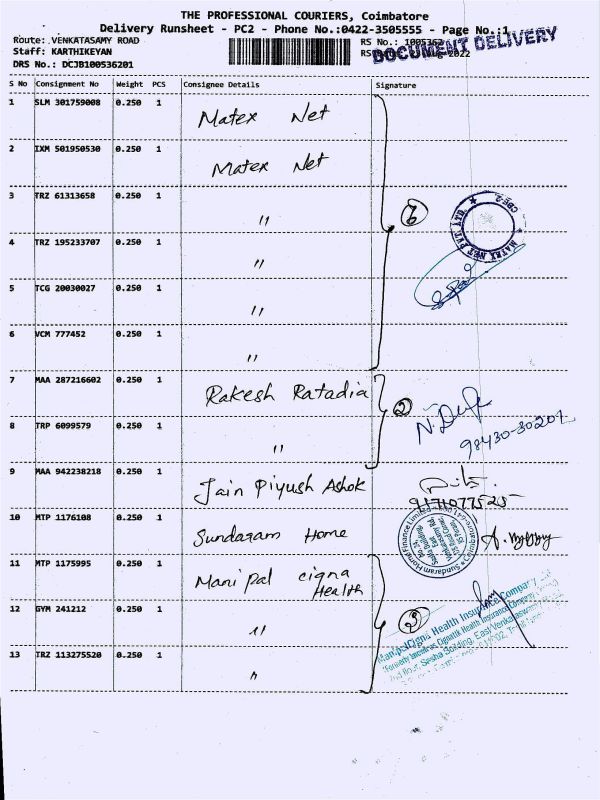 THE PROFESSIONAL COURIERS, Coimbatore
Delivery Runsheet - PC2 - Phone No.:0422-3505555 - Page No.:1
Route: VENKATASAMY ROAD
RS No.: 1005362
DOCUMENT DELIVERY
Staff: KARTHIKEYAN
2022
DRS No.: DCJB100536201
S No Consignment No Weight PCS Consignee Details Signature
1 SLM 301759008 0.250 1 Matex Net
2 IXM 501950530 0.250 1 Matex Net
3 TRZ 61313658 0.250 1 "
6
4 TRZ 195233707 0.250 1 "
MATEX NET PVT LTD
CBE-2
5 TCG 20030027 0.250 1 "
6 VCM 777452 0.250 1 "
7 MAA 287216602 0.250 1 Rakesh Ratadia
2
8 TRP 6099579 0.250 1 "
98430-30201
9 MAA 942238218 0.250 1 Jain Piyush Ashok
9171077525
10 MTP 1176108 0.250 1 Sundaram Home
Sundaram Home Finance Limited
11 MTP 1175995 0.250 1 Manipal cigna Health
3
12 GYM 241212 0.250 1 "
ManipalCigna Health Insurance Company
13 TRZ 113275520 0.250 1 "
2nd floor, Sesha Building, East Venkataswamy